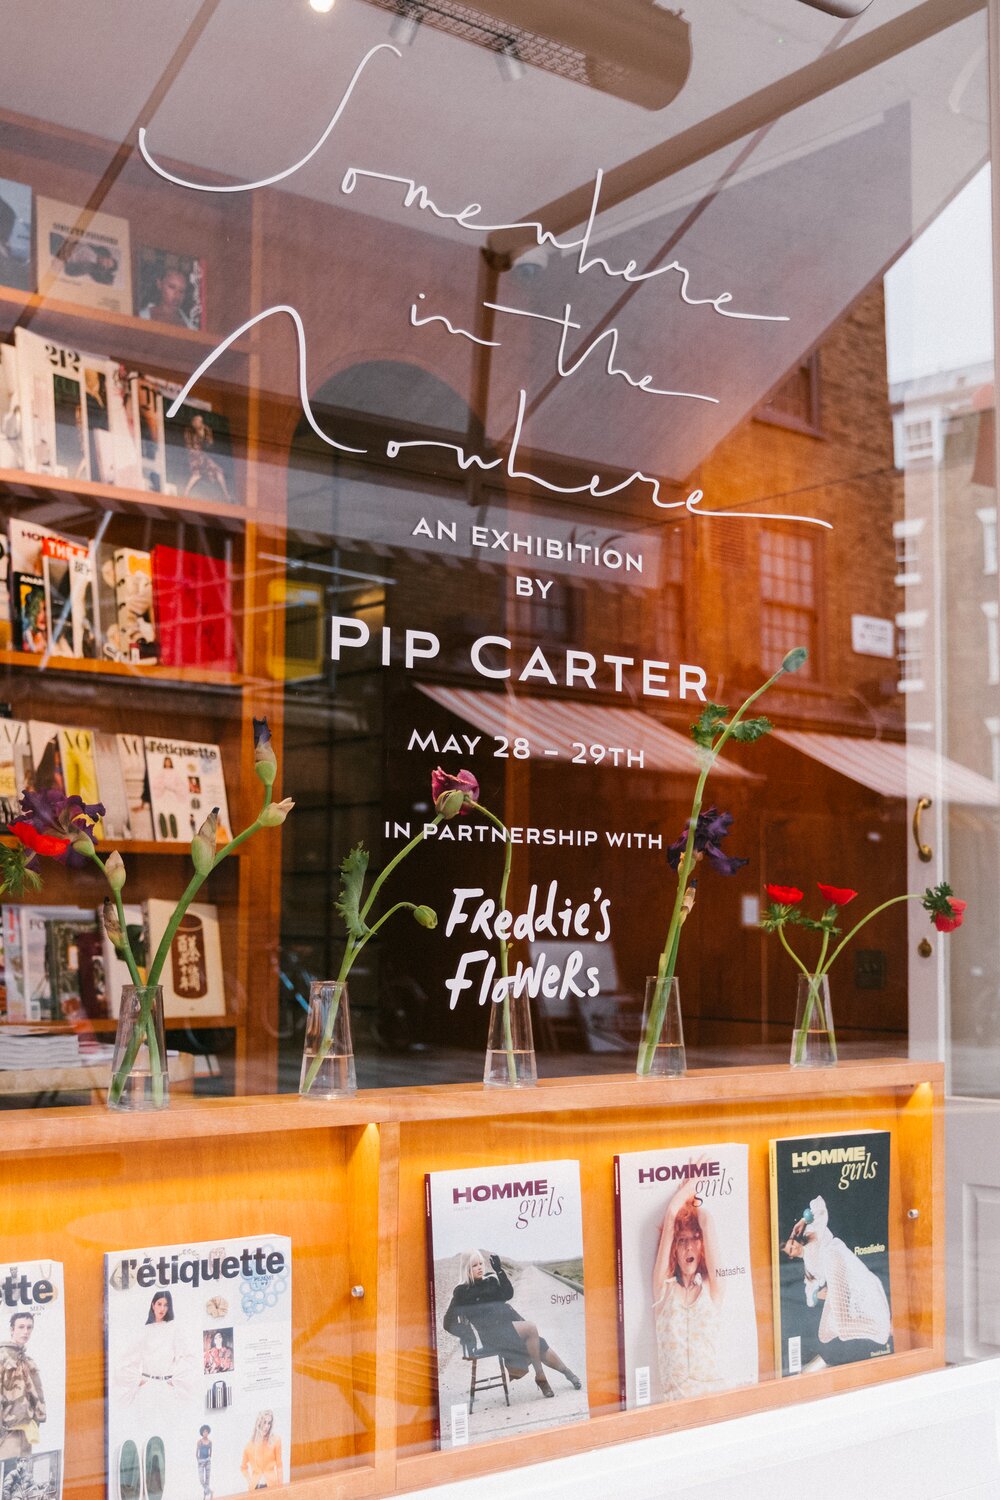 Somewhere
in the
Nowhere
AN EXHIBITION
BY
PIP CARTER
MAY 28 – 29TH
IN PARTNERSHIP WITH
Freddie's
Flowers
212
l'étiquette
HOMME
girls
Shygirl
HOMME
girls
Natasha
HOMME
girls
Rosalieke
l'étiquette
tte
MEN